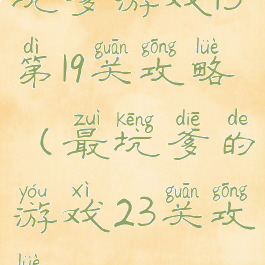 坑爹游戏15
dì guān gōng lüè
第19关攻略
zuì kēng diē de
(最坑爹的
yóu xì guān gōng
游戏23关攻
lüè